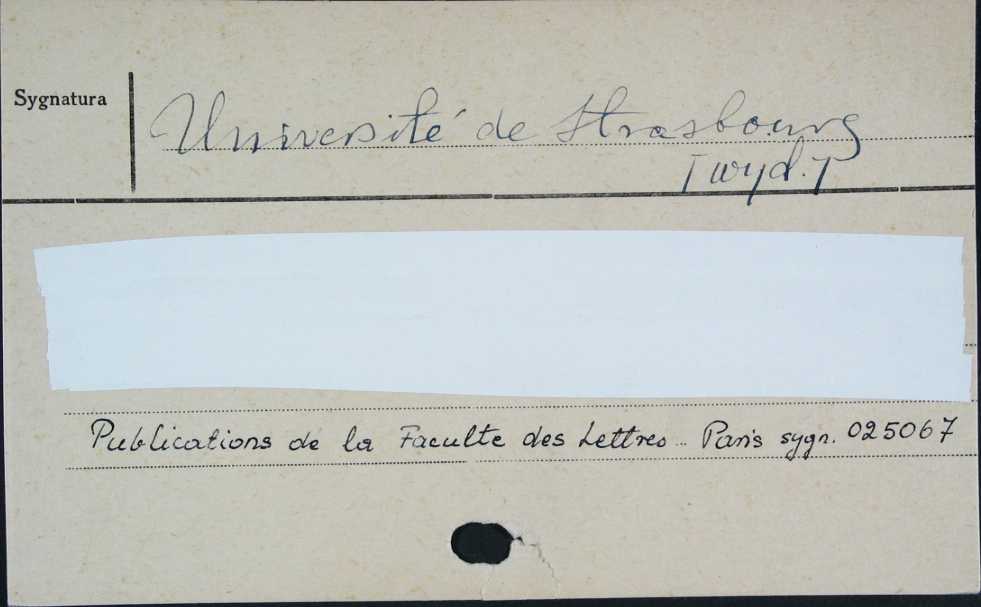 Sygnatura
Université de Strasbourg
[wyd.]
Publications de la Faculte des Lettres .. Paris sygn. 025067